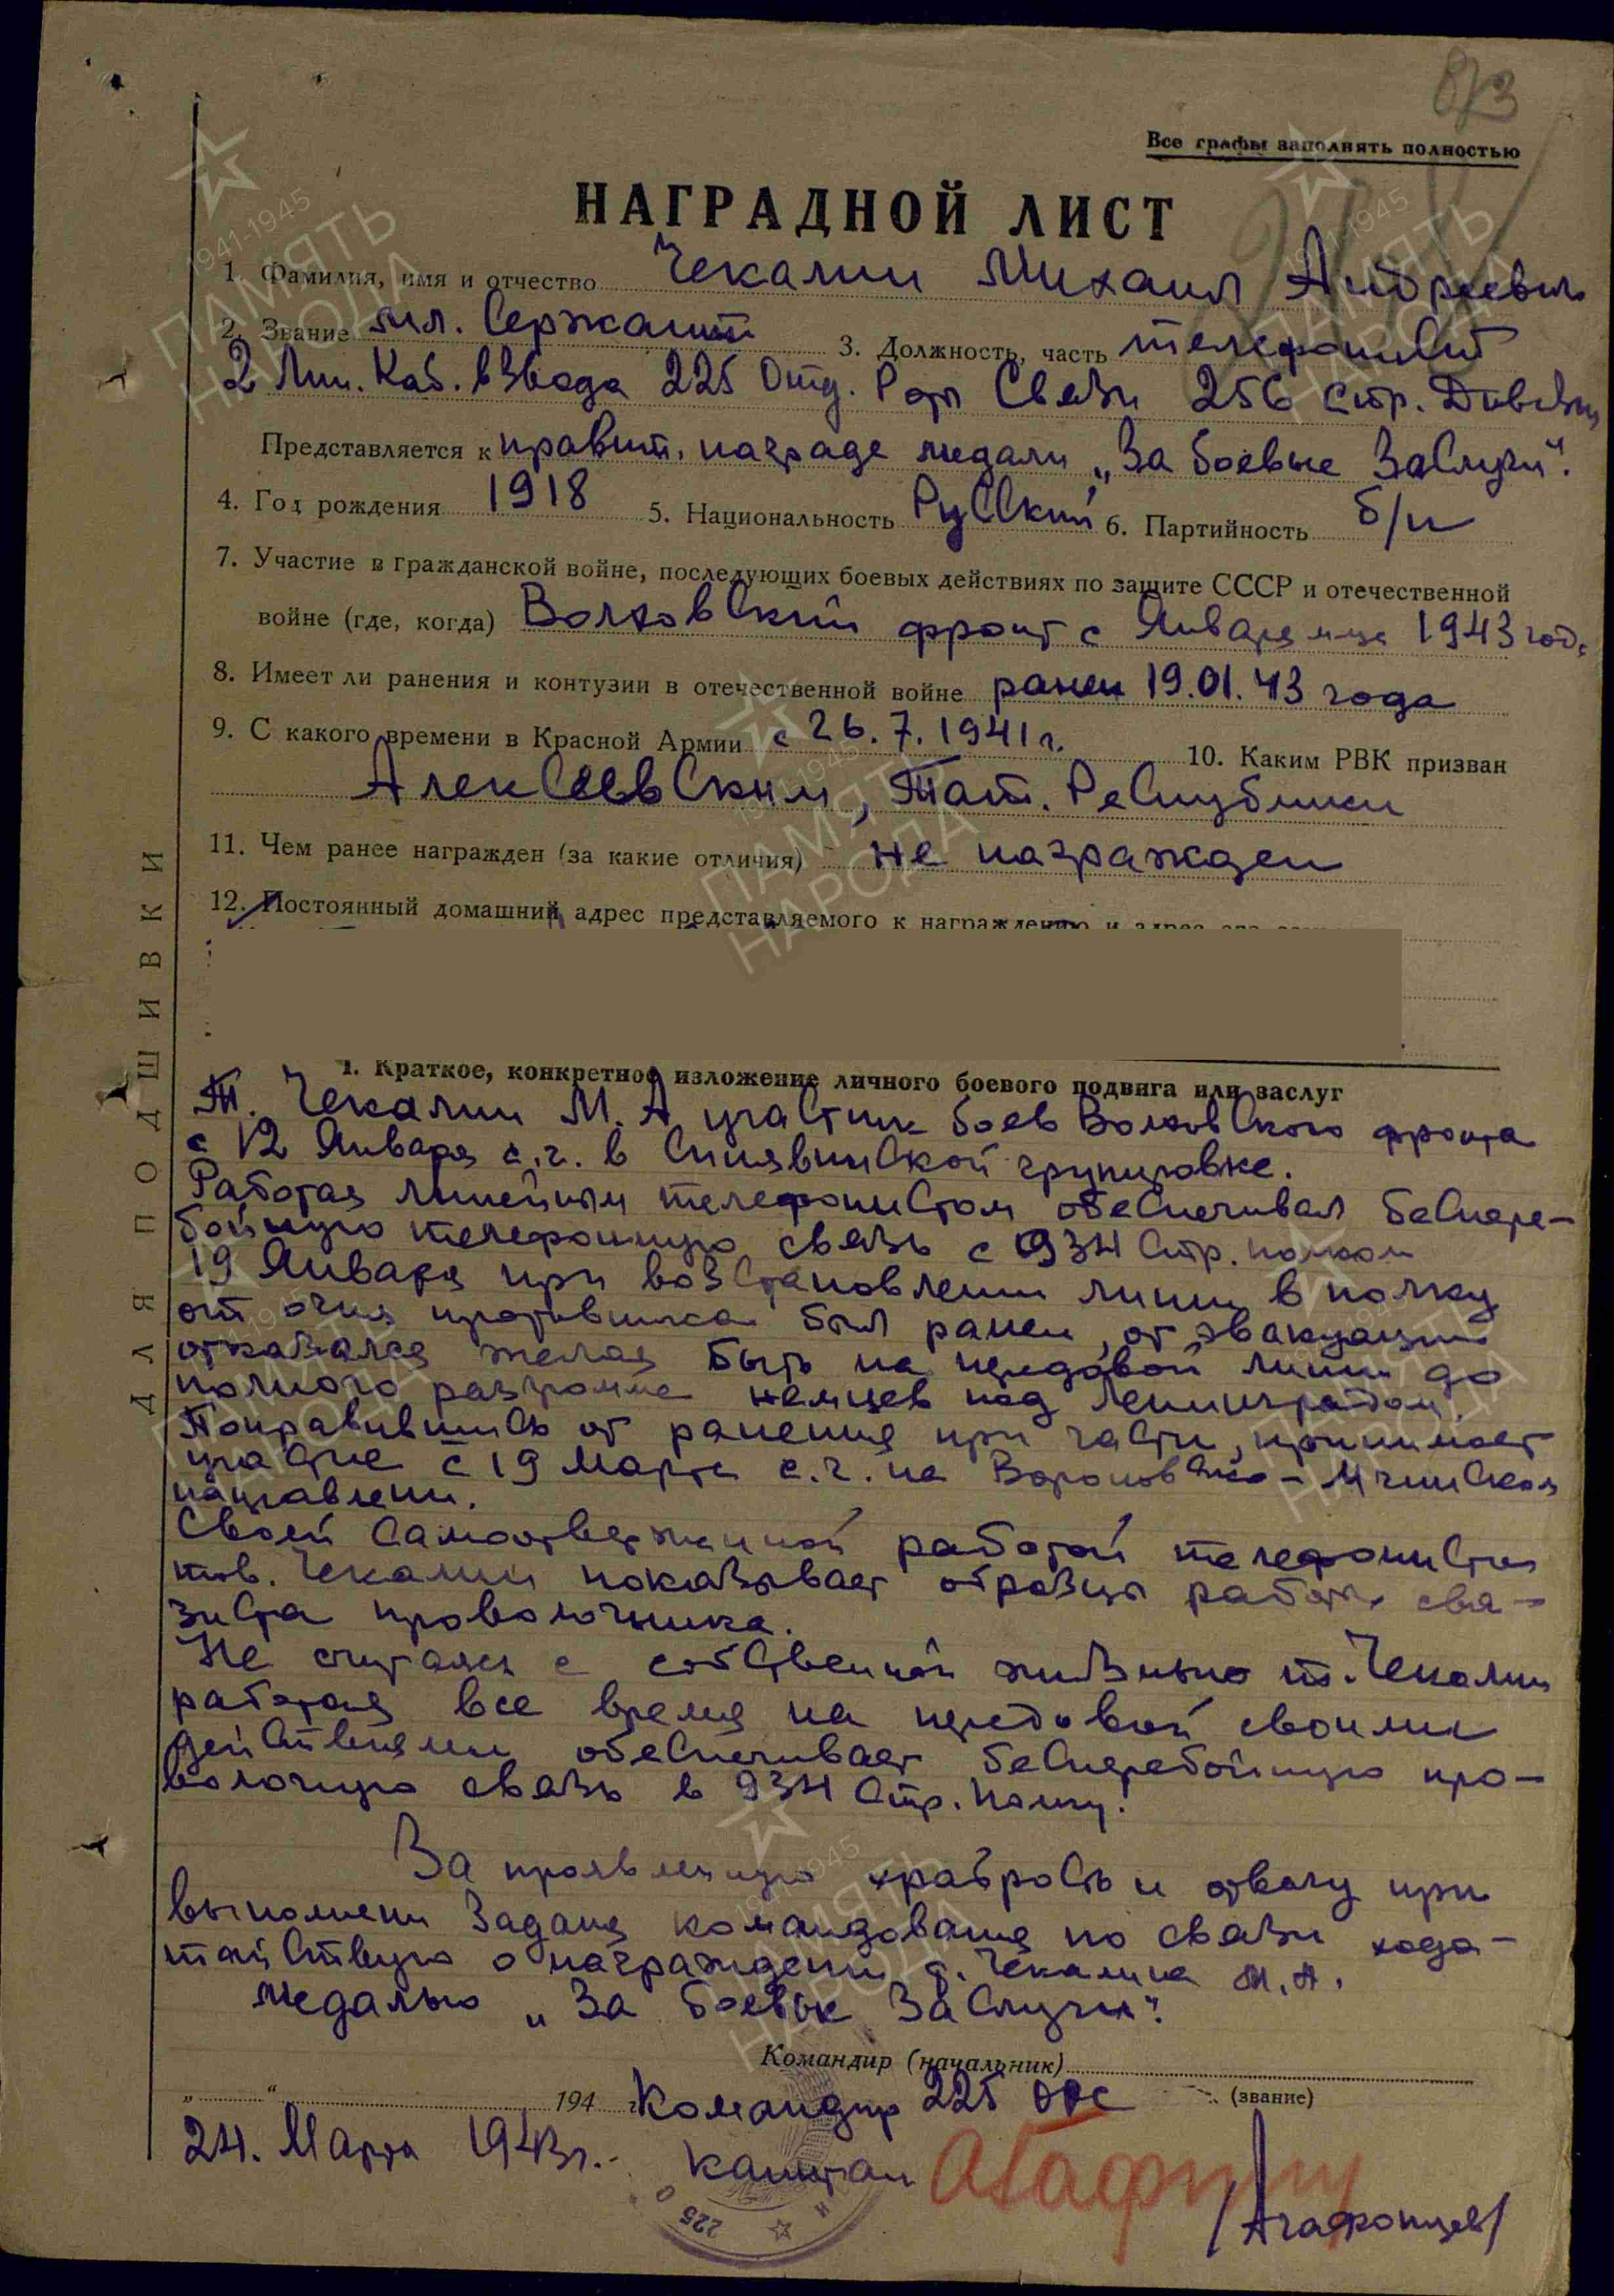 873
Все графы заполнять полностью
НАГРАДНОЙ ЛИСТ
1. Фамилия, имя и отчество Чекалин Михаил Андреевич
2. Звание мл. Сержант 3. Должность, часть телефонист
2 Лин. Каб. взвода 225 Отд. Роты Связи 256 Стр. Дивизии
Представляется к правит. награде медали „За боевые Заслуги“.
4. Год рождения 1918 5. Национальность Русский 6. Партийность б/п
7. Участие в гражданской войне, последующих боевых действиях по защите СССР и отечественной
войне (где, когда) Волховский фронт с Января м-ца 1943 год.
8. Имеет ли ранения и контузии в отечественной войне ранен 19.01.43 года
9. С какого времени в Красной Армии с 26.7.1941 г. 10. Каким РВК призван
Алексеевским, Тат. Республики
11. Чем ранее награжден (за какие отличия) не награжден
12. Постоянный домашний адрес представляемого к награждению и адрес его
1. Краткое, конкретное изложение личного боевого подвига или заслуг
Т. Чекалин М. А участник боев Волховского фронта
с 12 Января с.г. в Синявинской групировке.
Работая линейным телефонистом обеспечивал беспере-
бойную телефонную связь с 934 Стр. полком
19 Января при возстановлении линии в полку
от огня противника был ранен, от эвакуации
отказался желая быть на передовой линии до
полного разгрома немцев под Ленинградом.
Поправившись от ранения при части, принимает
участие с 19 Марта с.г. на Вороновско-Мгинском
направлени.
Своей самоотверженной работой телефониста
тов. Чекалин показывает образцы работы свя-
зиста проволочника.
Не считаясь с собственной жизнью т. Чекалин
работая все время на передовой своими
действиями обеспечивает бесперебойную про-
волочную связь в 934 Стр. полку.
За проявленную храбрость и отвагу при
выполнени задания командования по связи хода-
тайствую о награждени т. Чекалина М.А.
медалью „За боевые Заслуги“.
Командир (начальник)
„ “ 194 г. Командир 225 ОРС (звание)
24. Марта 1943 г. капитан
/Агафонцев/
225
ДЛЯ ПОДШИВКИ
1941-1945
ПАМЯТЬ
НАРОДА